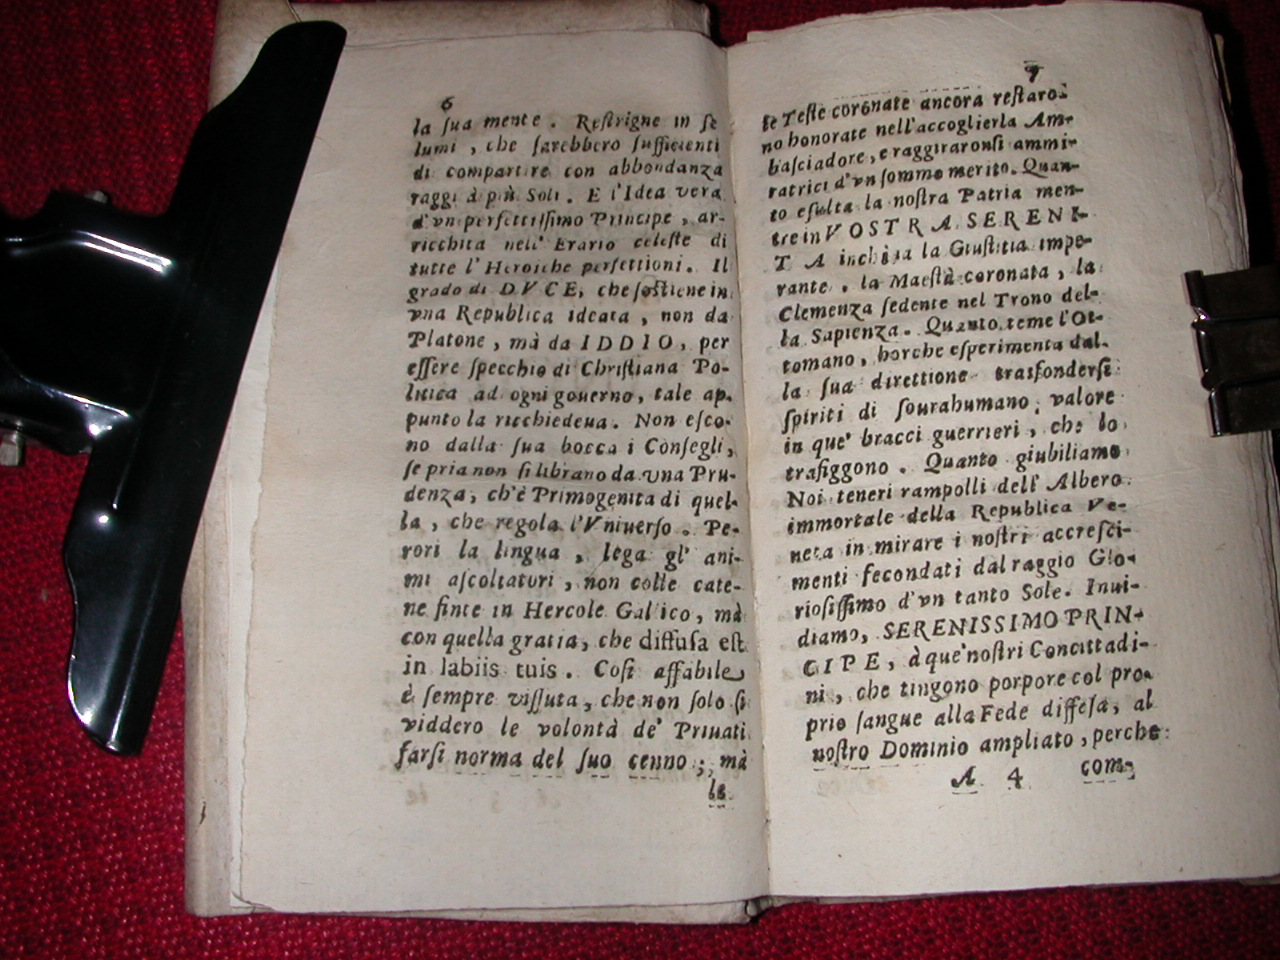 6
la ſua mente. Reſtrigne in ſe
lumi, che ſarebbero ſufficienti
di compartire con abbondanza
raggi à più Soli. E l'Idea vera
d'vn perfettiſſimo Principe, ar-
ricchita nell' Erario celeſte di
tutte l'Heroiche perfettioni. Il
grado di DVCE, che ſoſtiene in
vna Republica ideata, non da
Platone, mà da IDDIO, per
eſſere ſpecchio di Chriſtiana Po-
litica ad ogni gouerno, tale ap-
punto la ricchiedeua. Non eſco-
no dalla ſua bocca i Conſegli,
ſe pria non ſi librano da vna Pru-
denza, ch'è Primogenita di quel-
la, che regola l'Vniuerſo. Pe-
rori la lingua, lega gl' ani-
mi aſcoltatori, non colle cate-
ne finte in Hercole Gallico, mà
con quella gratia, che diffuſa eſt
in labiis tuis. Coſi affabile
è ſempre viſſuta, che non ſolo ſi
viddero le volontà de' Priuati
farſi norma del ſuo cenno; mà
le
7
le Teſte coronate ancora reſtaro-
no honorate nell'accoglierla Am-
baſciadore, e raggiraronſi ammi-
ratrici d'vn ſommo merito. Quan-
to eſulta la noſtra Patria men-
tre in VOSTRA SERENI-
TA inchina la Giuſtitia impe-
rante, la Maeſtà coronata, la
Clemenza ſedente nel Trono del-
la Sapienza. Quanto teme l'Ot-
tomano, horche eſperimenta dal-
la ſua direttione trasfonderſi
ſpiriti di ſourahumano valore
in que' bracci guerrieri, che lo
trafiggono. Quanto giubiliamo
Noi teneri rampolli dell' Albero
immortale della Republica Ve-
neta in mirare i noſtri accreſci-
menti fecondati dal raggio Glo-
rioſiſſimo d'vn tanto Sole. Inui-
diamo, SERENISSIMO PRIN-
CIPE, à que' noſtri Concittadi-
ni, che tingono porpore col pro-
prio ſangue alla Fede diffeſa, al
noſtro Dominio ampliato, perche
A 4 com-